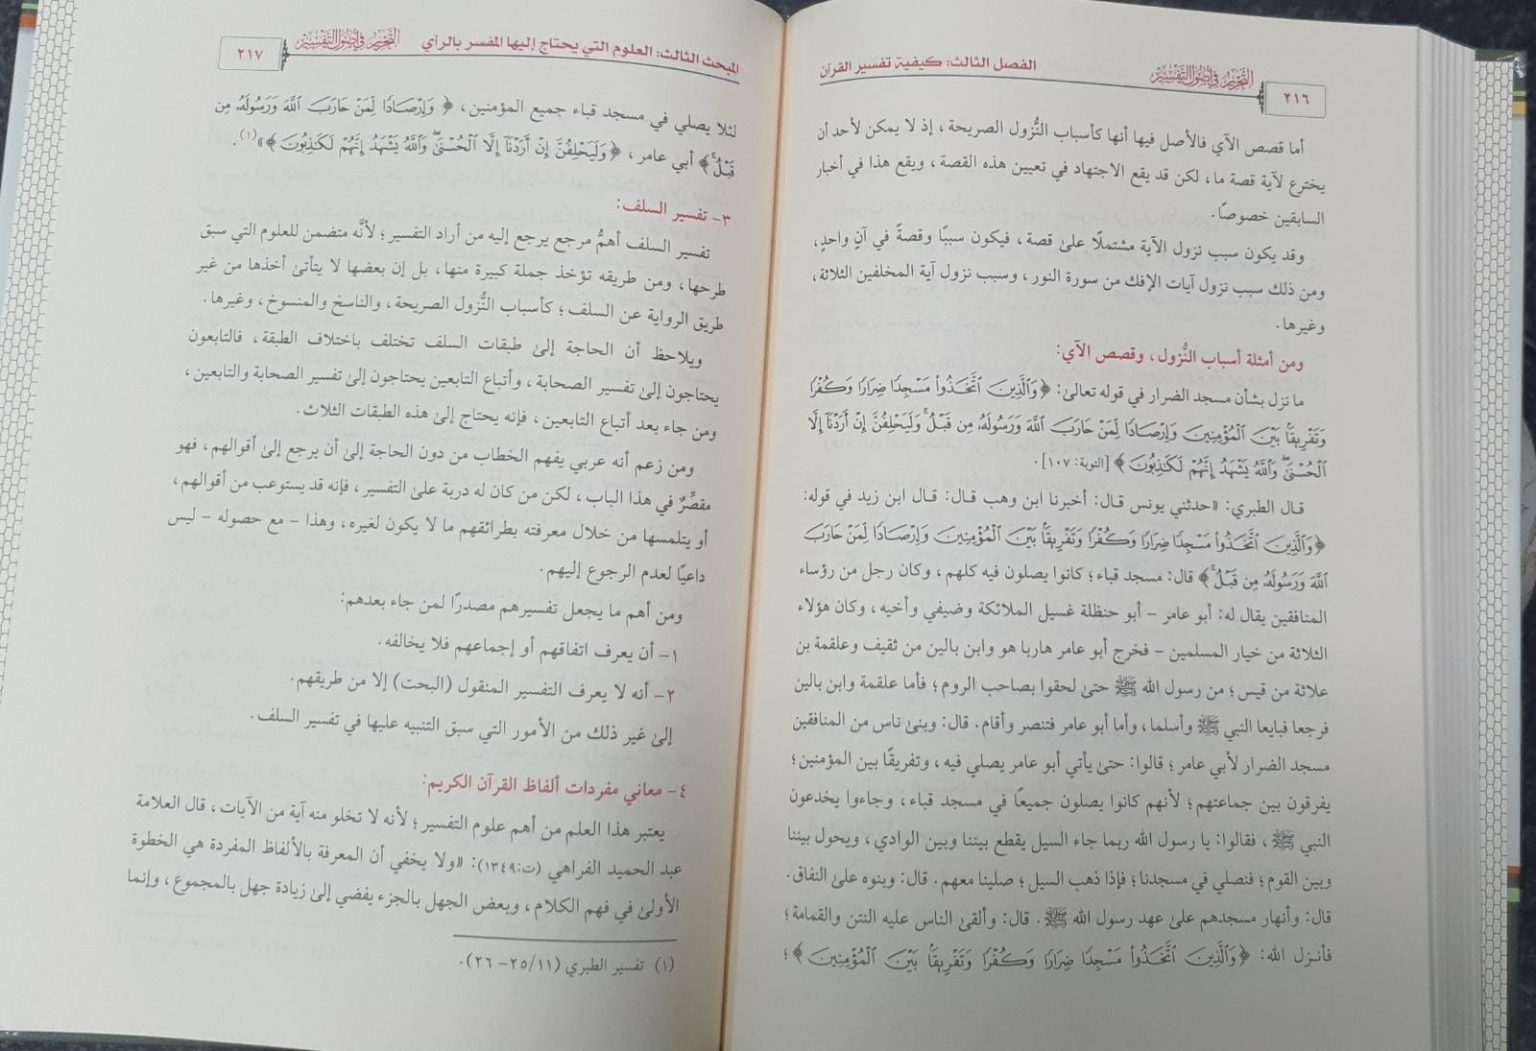 ٢١٦
التحرير في أصول التفسير
الفصل الثالث: كيفية تفسير القرآن
أما قصص الآي فالأصل فيها أنها كأسباب النُّزول الصريحة، إذ لا يمكن لأحد أن
يخترع لآية قصة ما، لكن قد يقع الاجتهاد في تعيين هذه القصة، ويقع هذا في أخبار
السابقين خصوصًا.
وقد يكون سبب نزول الآية مشتملًا علىٰ قصة، فيكون سببًا وقصةً في آنٍ واحدٍ،
ومن ذلك سبب نزول آيات الإفك من سورة النور، وسبب نزول آية المخلفين الثلاثة،
وغيرها.
ومن أمثلة أسباب النُّزول، وقصص الآي:
ما نزل بشأن مسجد الضرار في قوله تعالىٰ: ﴿وَٱلَّذِينَ ٱتَّخَذُوا۟ مَسْجِدًا ضِرَارًا وَكُفْرًا
وَتَفْرِيقًۢا بَيْنَ ٱلْمُؤْمِنِينَ وَإِرْصَادًا لِّمَنْ حَارَبَ ٱللَّهَ وَرَسُولَهُۥ مِن قَبْلُ ۚ وَلَيَحْلِفُنَّ إِنْ أَرَدْنَآ إِلَّا
ٱلْحُسْنَىٰ ۖ وَٱللَّهُ يَشْهَدُ إِنَّهُمْ لَكَٰذِبُونَ﴾ [التوبة: ١٠٧].
قال الطبري: «حدثني يونس قال: أخبرنا ابن وهب قال: قال ابن زيد في قوله:
﴿وَٱلَّذِينَ ٱتَّخَذُوا۟ مَسْجِدًا ضِرَارًا وَكُفْرًا وَتَفْرِيقًۢا بَيْنَ ٱلْمُؤْمِنِينَ وَإِرْصَادًا لِّمَنْ حَارَبَ
ٱللَّهَ وَرَسُولَهُۥ مِن قَبْلُ ۚ﴾ قال: مسجد قباء؛ كانوا يصلون فيه كلهم، وكان رجل من رؤساء
المنافقين يقال له: أبو عامر – أبو حنظلة غسيل الملائكة وضيفي وأخيه، وكان هؤلاء
الثلاثة من خيار المسلمين – فخرج أبو عامر هاربا هو وابن بالين من ثقيف وعلقمة بن
علاثة من قيس؛ من رسول الله ﷺ حتىٰ لحقوا بصاحب الروم؛ فأما علقمة وابن بالين
فرجعا فبايعا النبي ﷺ وأسلما، وأما أبو عامر فتنصر وأقام. قال: وبنىٰ ناس من المنافقين
مسجد الضرار لأبي عامر؛ قالوا: حتىٰ يأتي أبو عامر يصلي فيه، وتفريقًا بين المؤمنين؛
يفرقون بين جماعتهم؛ لأنهم كانوا يصلون جميعًا في مسجد قباء، وجاءوا يخدعون
النبي ﷺ، فقالوا: يا رسول الله ربما جاء السيل يقطع بيننا وبين الوادي، ويحول بيننا
وبين القوم؛ فنصلي في مسجدنا؛ فإذا ذهب السيل؛ صلينا معهم. قال: وبنوه علىٰ النفاق.
قال: وأنهار مسجدهم علىٰ عهد رسول الله ﷺ. قال: وألقىٰ الناس عليه النتن والقمامة؛
فأنزل الله: ﴿وَٱلَّذِينَ ٱتَّخَذُوا۟ مَسْجِدًا ضِرَارًا وَكُفْرًا وَتَفْرِيقًۢا بَيْنَ ٱلْمُؤْمِنِينَ﴾؛
المبحث الثالث: العلوم التي يحتاج إليها المفسر بالرأي
التحرير في أصول التفسير
٢١٧
لئلا يصلي في مسجد قباء جميع المؤمنين، ﴿وَإِرْصَادًا لِّمَنْ حَارَبَ ٱللَّهَ وَرَسُولَهُۥ مِن
قَبْلُ ۚ﴾ أبي عامر، ﴿وَلَيَحْلِفُنَّ إِنْ أَرَدْنَآ إِلَّا ٱلْحُسْنَىٰ ۖ وَٱللَّهُ يَشْهَدُ إِنَّهُمْ لَكَٰذِبُونَ﴾»(١).
٣- تفسير السلف:
تفسير السلف أهمُّ مرجع يرجع إليه من أراد التفسير؛ لأنَّه متضمن للعلوم التي سبق
طرحها، ومن طريقه تؤخذ جملة كبيرة منها، بل إن بعضها لا يتأتىٰ أخذها من غير
طريق الرواية عن السلف؛ كأسباب النُّزول الصريحة، والناسخ والمنسوخ، وغيرها.
ويلاحظ أن الحاجة إلىٰ طبقات السلف تختلف باختلاف الطبقة، فالتابعون
يحتاجون إلىٰ تفسير الصحابة، وأتباع التابعين يحتاجون إلىٰ تفسير الصحابة والتابعين،
ومن جاء بعد أتباع التابعين، فإنه يحتاج إلىٰ هذه الطبقات الثلاث.
ومن زعم أنه عربي يفهم الخطاب من دون الحاجة إلىٰ أن يرجع إلىٰ أقوالهم، فهو
مقصِّرٌ في هذا الباب، لكن من كان له دربة علىٰ التفسير، فإنه قد يستوعب من أقوالهم،
أو يتلمسها من خلال معرفته بطرائقهم ما لا يكون لغيره، وهذا – مع حصوله – ليس
داعيًا لعدم الرجوع إليهم.
ومن أهم ما يجعل تفسيرهم مصدرًا لمن جاء بعدهم:
١- أن يعرف اتفاقهم أو إجماعهم فلا يخالفه.
٢- أنه لا يعرف التفسير المنقول (البحت) إلا من طريقهم.
إلىٰ غير ذلك من الأمور التي سبق التنبيه عليها في تفسير السلف.
٤- معاني مفردات ألفاظ القرآن الكريم:
يعتبر هذا العلم من أهم علوم التفسير؛ لأنه لا تخلو منه آية من الآيات، قال العلامة
عبد الحميد الفراهي (ت:١٣٤٩): «ولا يخفي أن المعرفة بالألفاظ المفردة هي الخطوة
الأولىٰ في فهم الكلام، وبعض الجهل بالجزء يفضي إلىٰ زيادة جهل بالمجموع، وإنما
(١) تفسير الطبري (١١/ ٢٥- ٢٦).